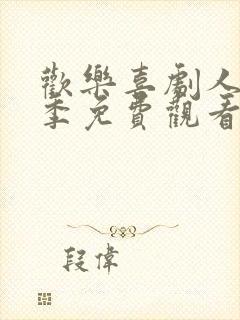 歡樂喜劇人
季免費觀看
段偉